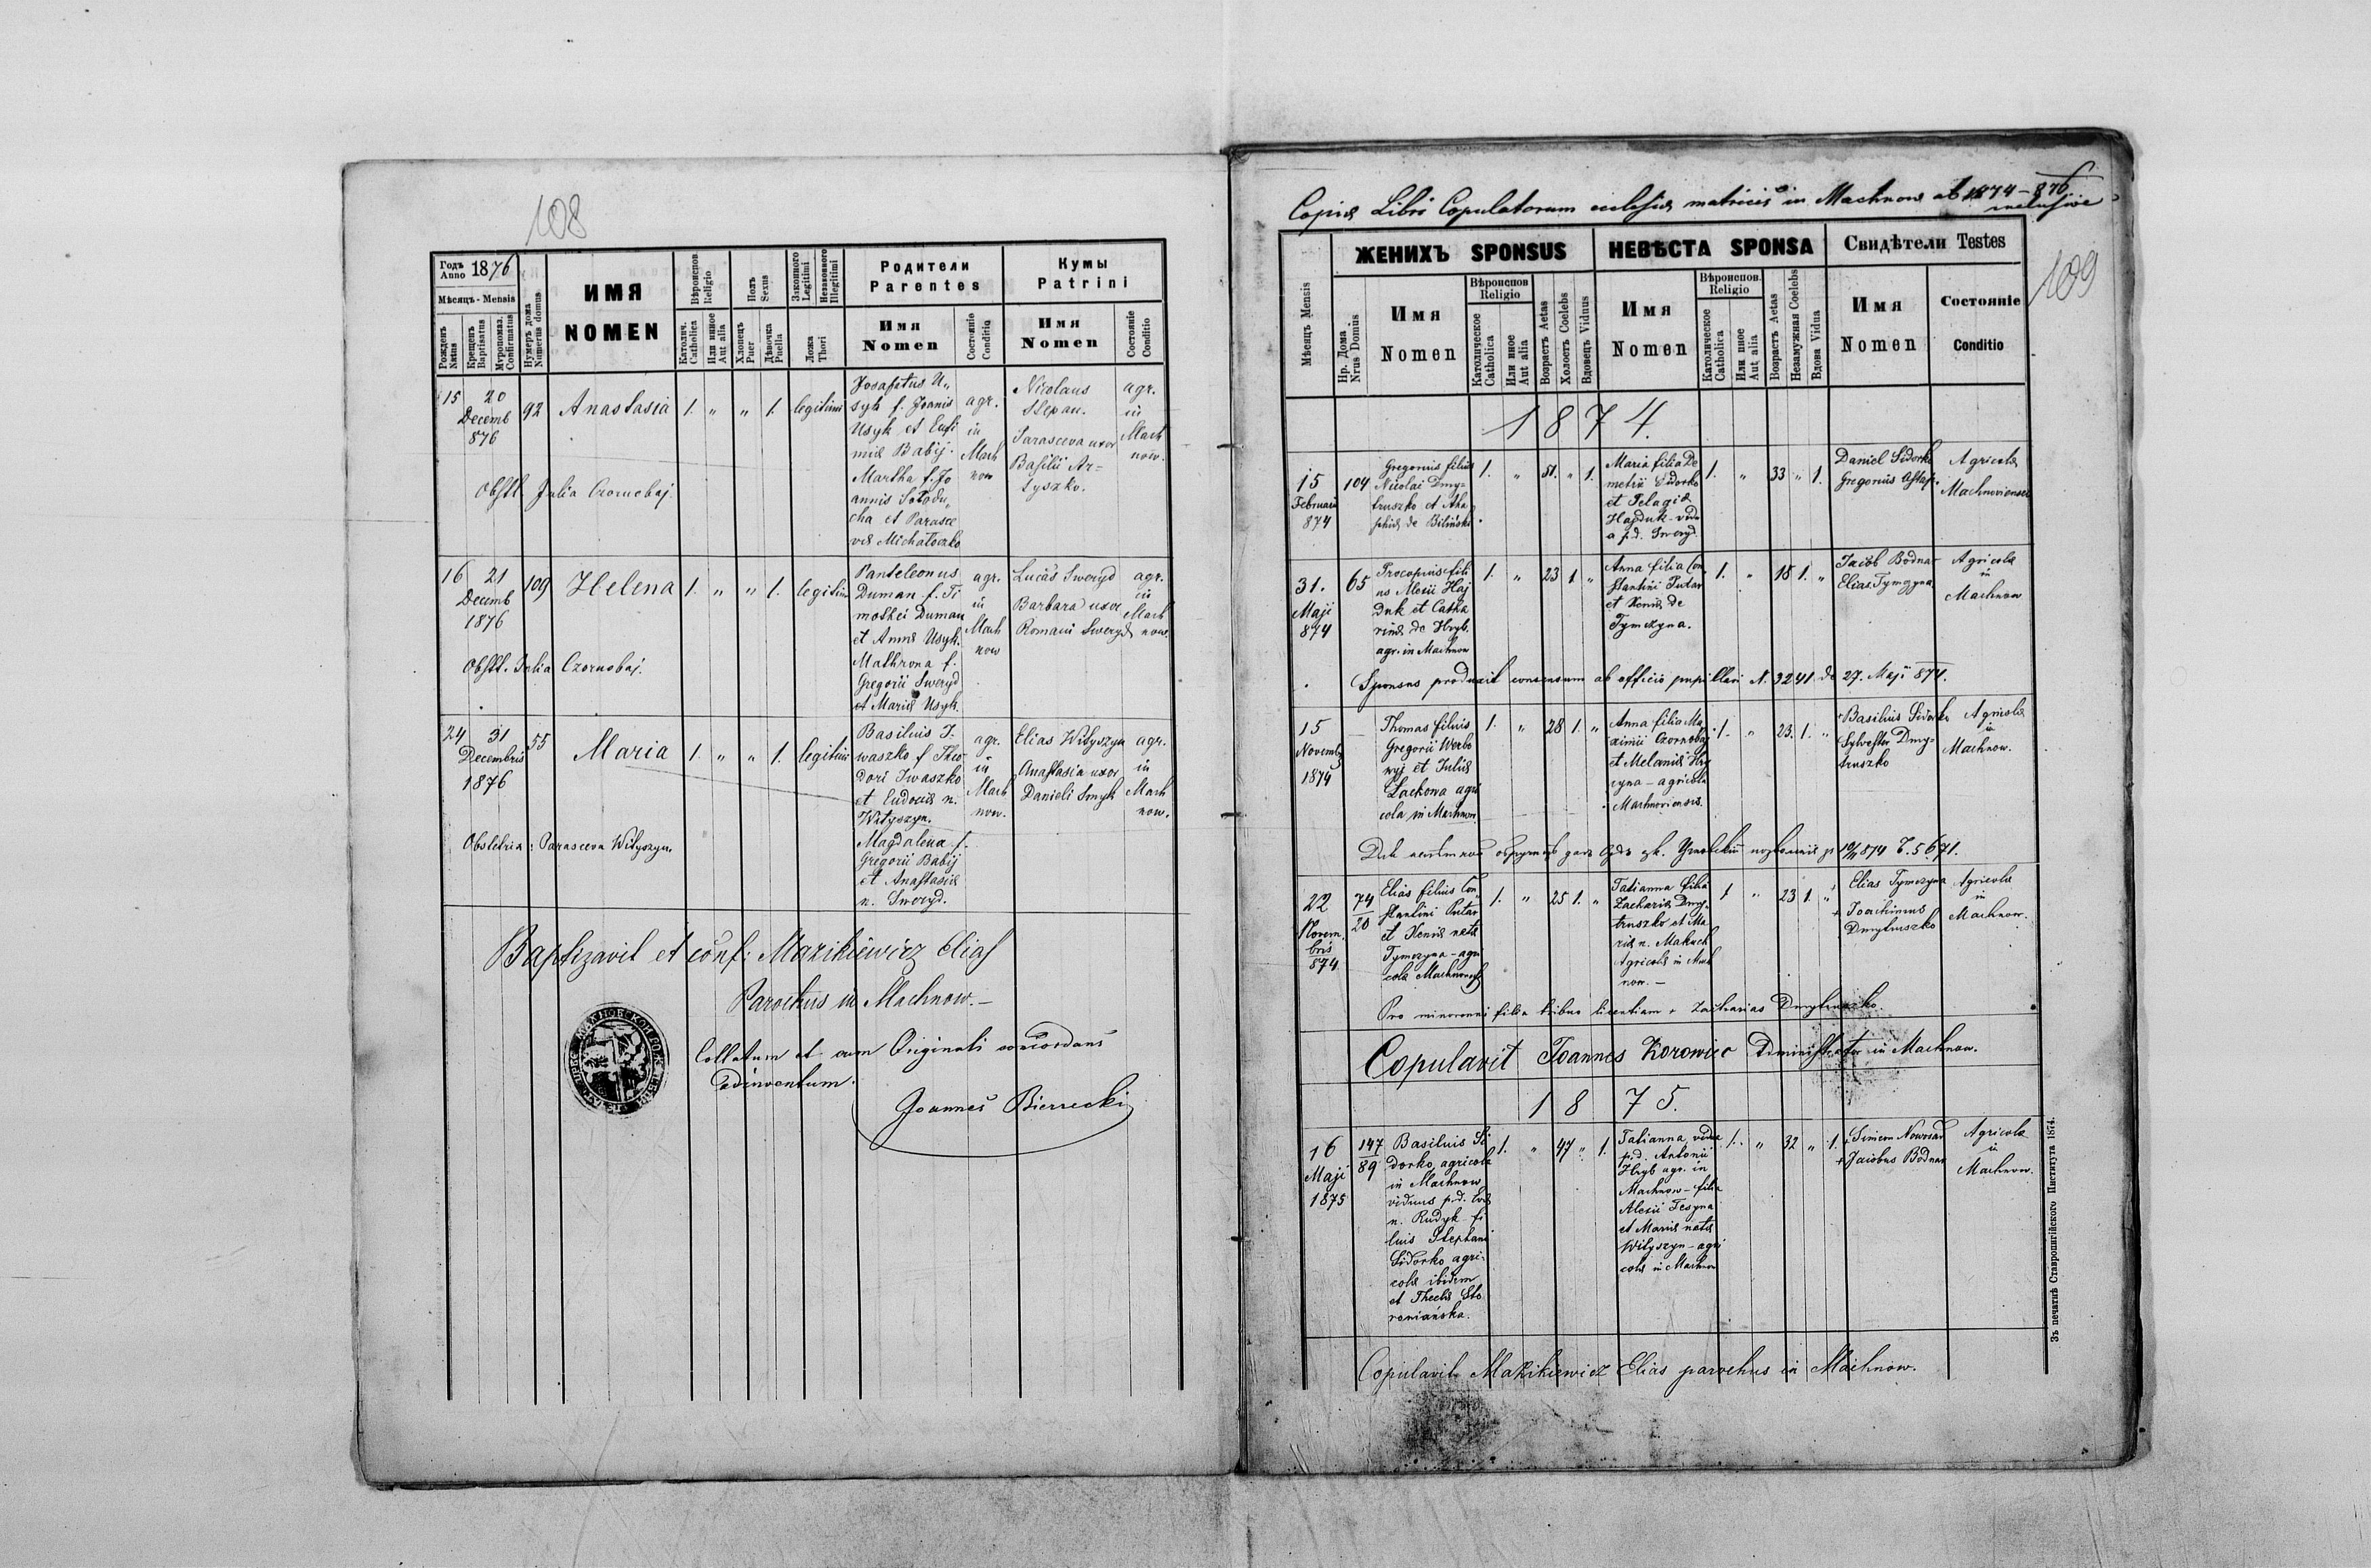 108
Годъ Anno 1876
Мѣсяцъ - Mensis
Рожденъ Natus
Крещенъ Baptisatus
Муропомаз. Confirmatus
Нумеръ дома Numerus domus
ИМЯ
NOMEN
Вѣроиспов. Religio
Католич. Catholica
Или иное Aut alia
Полъ Sexus
Хлопецъ Puer
Дѣвочка Puella
Законного Legitimi
Незаконного Illegitimi
Ложа Thori
Родители
Parentes
Имя
Nomen
Состояніе Conditio
Кумы
Patrini
Имя
Nomen
Состояніе Conditio
15 20
Decemb
876
92 Anastasia 1. " " 1. legitimi
Josafatus U„
syk f. Joanis
Usyk et Eufi
miæ Babij.
Martha f. Jo
annis
cha et Parasce
væ Michałoczko
agr.
in
Mach
now
Nicolaus
Stepan.
Parasceva uxor
Basilii Ar=
tyszko.
agr.
in
Mach
now.
Obstt. Julia Czornobaj.
16 21
Decemb
1876
109 Helena 1. " " 1. legitimi
Panteleonus
Duman f. Ti
mothei Duman
et Annæ Usyk.
Mathrona f.
Gregorii Sweryd
et Mariæ Usyk.
agr.
in
Mach
now
Lucas Sweryd
Barbara uxor
Romani Sweryd
agr.
in
Mach
now.
Obstt. Julia Czornobaj.
24 31
Decembris
1876
55 Maria 1. " " 1. legitimi
Basilius I„
waszko f. Theo
dori Iwaszko
et Eudociæ n.
Wityszyn.
Magdalena f.
Gregorii Babij
et Anastasiæ
n. Sweryd.
agr.
in
Mach
now.
Elias Wityszyn
Anastasia uxor
Danieli Smyk
agr.
in
Mach
now.
Obstetrix: Parasceva Wityszyn.
Baptizavit et conf: Mazikiewicz Elias
Parochus in Machnow. —
Collatum et cum Originali concordans
adinventum.
Joannes Bierecki
Copia Libri Copulatorum ecclesiæ matricis in Machnow ab 1874 – 876
inclusive
109
ЖЕНИХЪ SPONSUS
НЕВѢСТА SPONSA
Свидѣтели Testes
Мѣсяцъ Mensis
Нр. Дома Nrus Domus
Имя
Nomen
Вѣроиспов Religio
Католическое Catholica
Или иное Aut alia
Возрастъ Aetas
Холостъ Coelebs
Вдовецъ Viduus
Имя
Nomen
Вѣроиспов. Religio
Католическое Catholica
Или иное Aut alia
Возрастъ Aetas
Незамужная Coelebs
Вдова Vidua
Имя
Nomen
Состояніе
Conditio
1874.
15
Februarii
874
104
Gregorius filius
Nicolai Dmy=
truszko et Aha
phiæ de Biliński.
1. " 51. " 1.
Maria filia De
metrii Sidorko
et Pelagiæ
Hajduk – vidu
a p.d. Sweryd.
1. " 33 " 1.
Daniel Sidorko
Gregorius
Agricolæ
Machnovienses
31.
Maji
874
65
Procopius fili
us Alexii Haj
duk et Catha
rinæ de Hryb.
agr. in Machnow
1. " 23 1 "
Anna filia Con
stantini Putar
et Xeniæ de
Tymczyna.
1. " 18 1. "
Jacob Bodnar
Elias Tymczyna
Agricolæ
in
Machnow
Sponsus produxit consensum ab officio pupillari N. 3241 de 27. Maji 874.
15
Novemb
1874
Thomas filius
Gregorii Werbo
wyj et Juliæ
Lackowa agri
cola in Machnow
1. " 28 1. "
Anna filia Ma
ximii Czornobaj
et Melaniæ Hry
cyna – agricola
Machnoviensis.
1. " 23. 1. "
Basilius Sidorko
Sylvester Dmy=
truszko
Agricolæ
in
Machnow.
874 5671.
22
Novem
bris
874
74
20
Elias filius Con
stantini Putar
et Xeniæ natæ
Tymczyna – agri
cola Machnow
1. " 25 1. "
Tatianna filia
Zachariæ Dmy
truszko et Ma
riæ n. Makuch
Agricolæ in Mach
now. —
1 " 23 1. "
Elias Tymczyna
Joachimus
Dmytruszko
Agricolæ
in
Machnow.
Pro minorenni filia tribuo licentiam + Zacharias Dmytruszko.
Copulavit Joannes Korowiec Administrator in Machnow.
1875.
16
Maji
1875
147
89
Basilius Si
dorko, agricola
in Machnow
viduus p.d. Evæ
n. Rudyk – fi
lius Stephani
Sidorko agri=
colæ ibidem
et Theclæ Sto
roniańska.
1. " 47 " 1.
Tatianna vidua
p.d. Antonii
Hryb agr. in
Machnow – filia
Alexii Tesyna
et Mariæ natæ
Wityszyn – agri
colæ in Machnow
1. " 32 " 1.
+Simeon Nowosad
+Jacobus Bodnar
Agricolæ
in
Machnow.
Copulavit Mazikiewicz Elias parochus in Machnow.
Зъ печатнѣ Ставропигійского Института 1874.